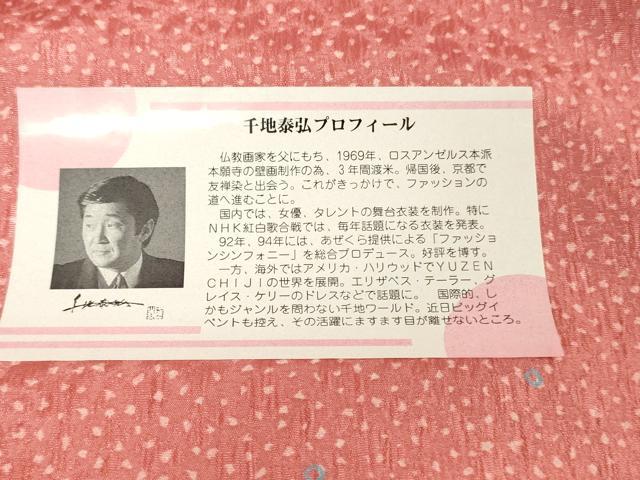 千地泰弘プロフィール
仏教画家を父にもち、1969年、ロスアンゼルス本派
本願寺の壁画制作の為、3年間渡米。帰国後、京都で
友禅染と出会う。これがきっかけで、ファッションの
道へ進むことに。
国内では、女優、タレントの舞台衣装を制作。特に
NHK紅白歌合戦では、毎年話題になる衣装を発表。
92年、94年には、あぜくら提供による「ファッショ
ンシンフォニー」を総合プロデュース。好評を博す。
一方、海外ではアメリカ・ハリウッドでYUZEN
CHIJIの世界を展開。エリザベス・テーラー、グ
レイス・ケリーのドレスなどで話題に。 国際的、し
かもジャンルを問わない千地ワールド。近日ビッグイ
ベントも控え、その活躍にますます目が離せないところ。
千地泰弘